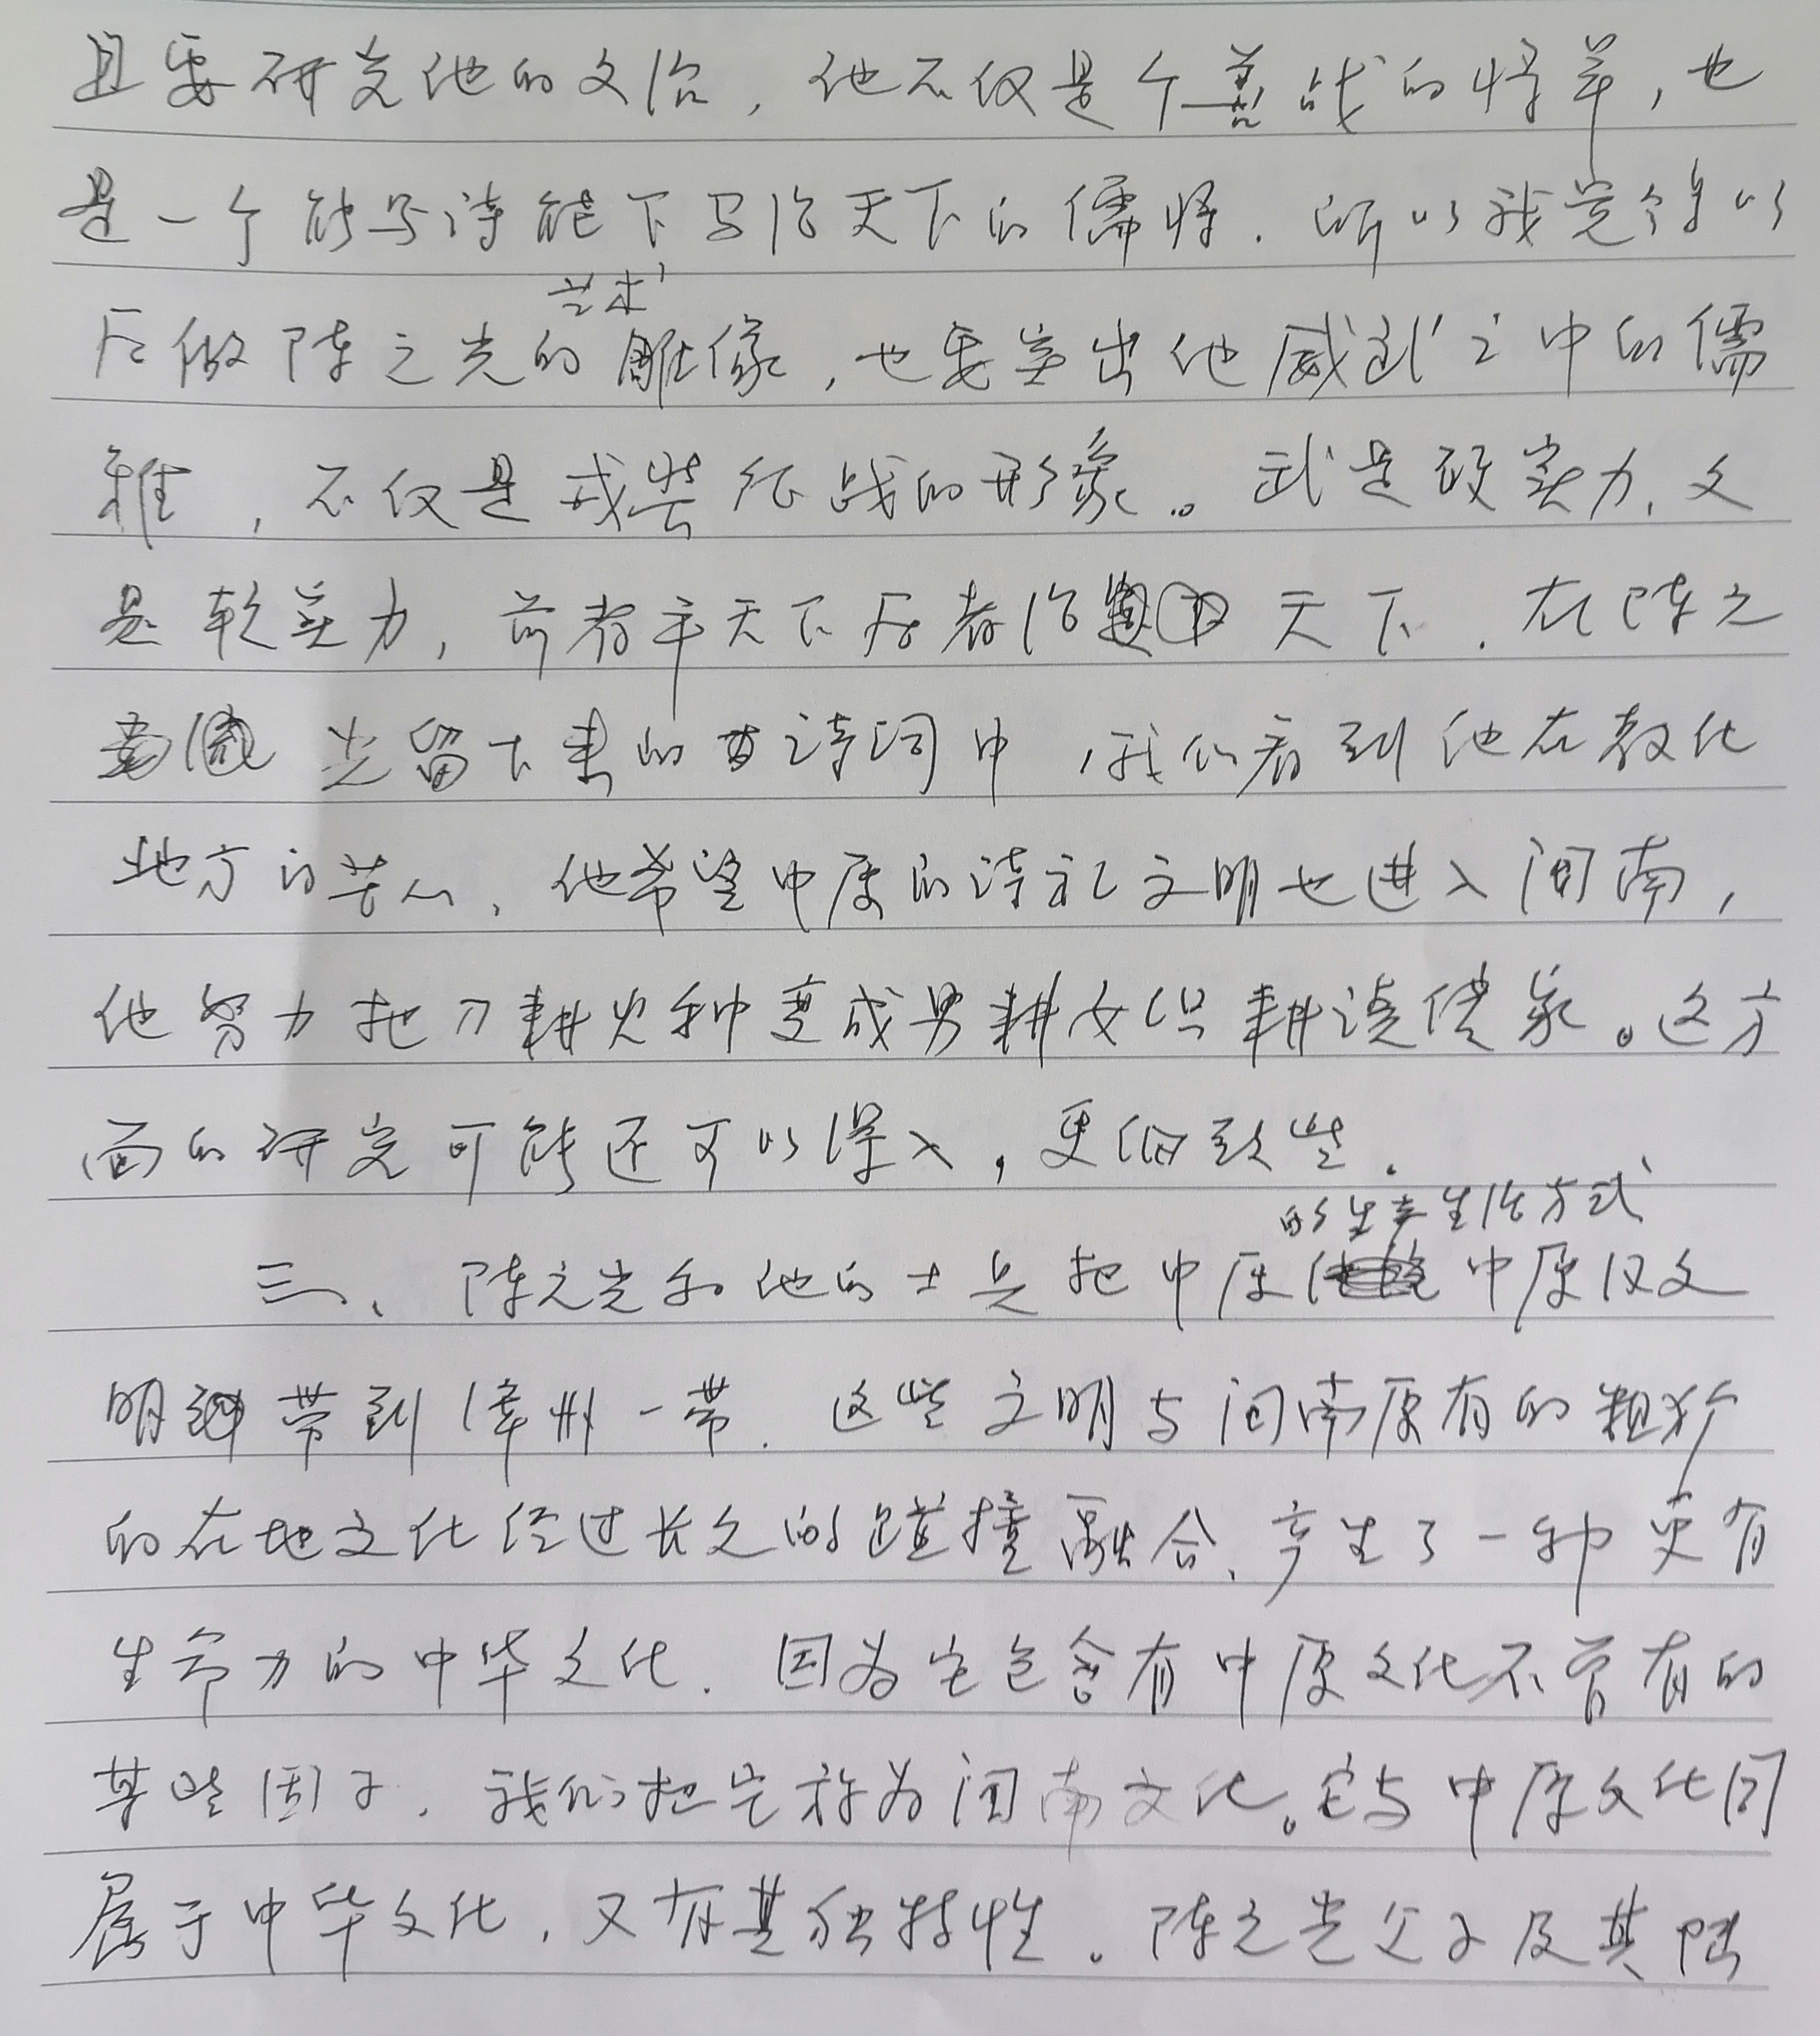 且要研究他的文治，他不仅是个善战的将军，也
是一个能写诗能下马治天下的儒将．所以我觉得以
艺术
后做陈元光的雕像，也要突出他威武之中的儒
雅，不仅是戎装征战的形象。武是硬实力，文
是软实力，前者平天下后者治天下．在陈元
光留下来的诗词中，我们看到他在教化
地方的苦心，他希望中原的诗礼文明也进入闽南，
他努力把刀耕火种变成男耕女织耕读传家。这方
面的研究可能还可以深入，更细致些．
的生产生活方式
三、陈元光和他的士兵把中原中原汉文
明带到漳州一带．这些文明与闽南原有的粗犷
的在地文化经过长久的碰撞融合，产生了一种更有
生命力的中华文化．因为它包含有中原文化不曾有的
某些因子．我们把它称为闽南文化。它与中原文化同
属于中华文化，又有其独特性。陈元光父子及其